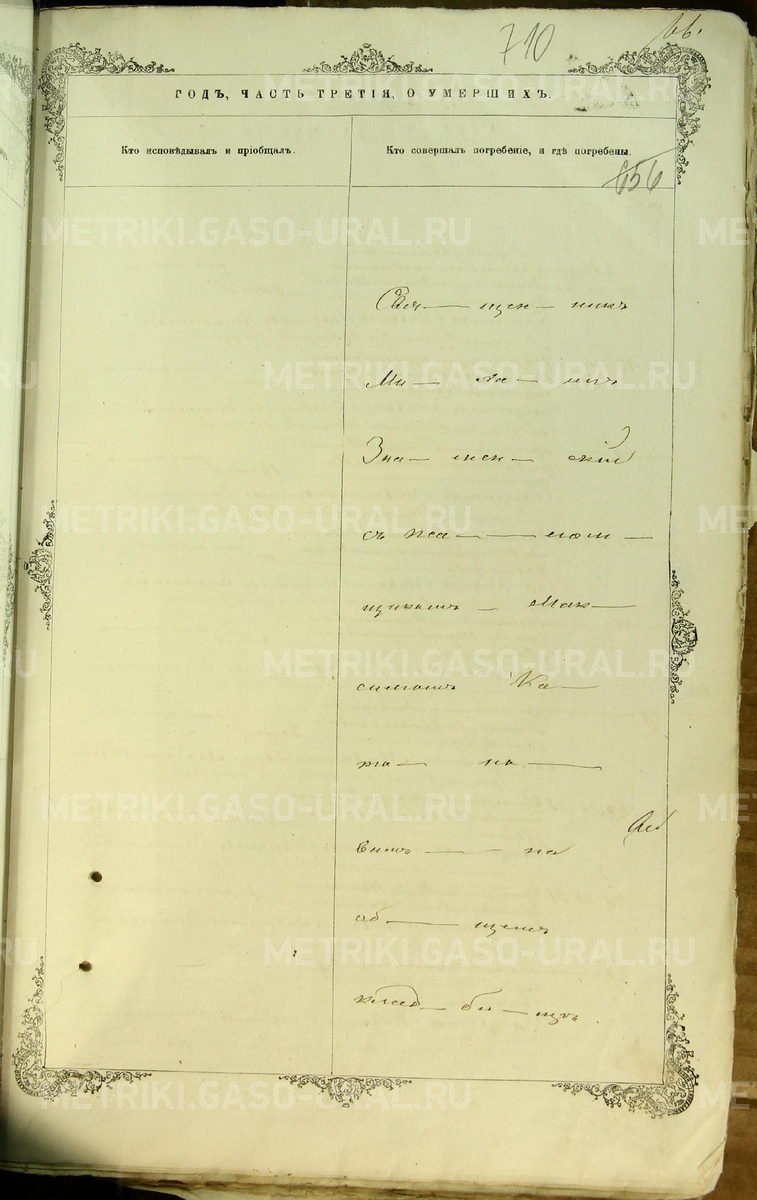 710
66.
ГОДЪ, ЧАСТЬ ТРЕТІЯ, О УМЕРШИХЪ.
Кто исповѣдывалъ и пріобщалъ.
Кто совершалъ погребеніе, и гдѣ погребены.
656
Свя— щен— никъ
Ми— ха— илъ
Зна— мен— скій
съ пса— — лом —
щикомъ — Мак—
симомъ Ка—
вымъ — — на
об— щемъ
клад— би— щѣ.
METRIKI.GASO-URAL.RU